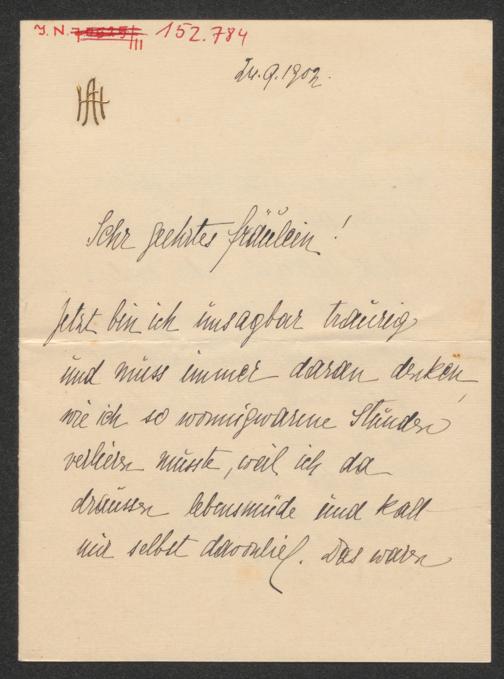 J. N. 152.784
III
AH
24.9.1902.
Sehr geehrtes Fräulein!
Jetzt bin ich unsagbar traurig
und muss immer daran denken,
wie ich so wonnigwarme Stunden
verlieren musste, weil ich da
draussen lebensmüde und kalt
mir selbst davonlief. Das waren